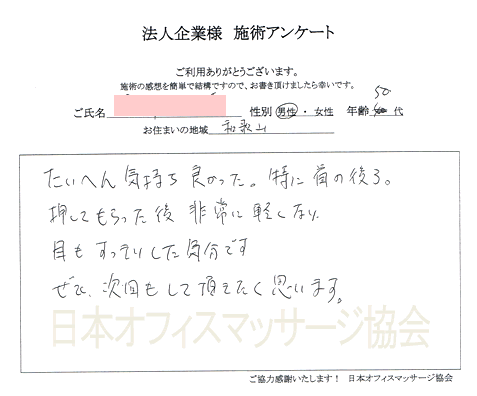 法人企業様 施術アンケート
ご利用ありがとうございます。
施術の感想を簡単で結構ですので、お書き頂けましたら幸いです。
ご氏名 性別 男性・女性 年齢 50 代
お住まいの地域 和歌山
たいへん気持ち良かった。特に首の後ろ。
押してもらった後 非常に軽くなり、
目も すっきりした気分です
ぜひ、次回もして頂きたく思います。
日本オフィスマッサージ協会
ご協力感謝いたします! 日本オフィスマッサージ協会